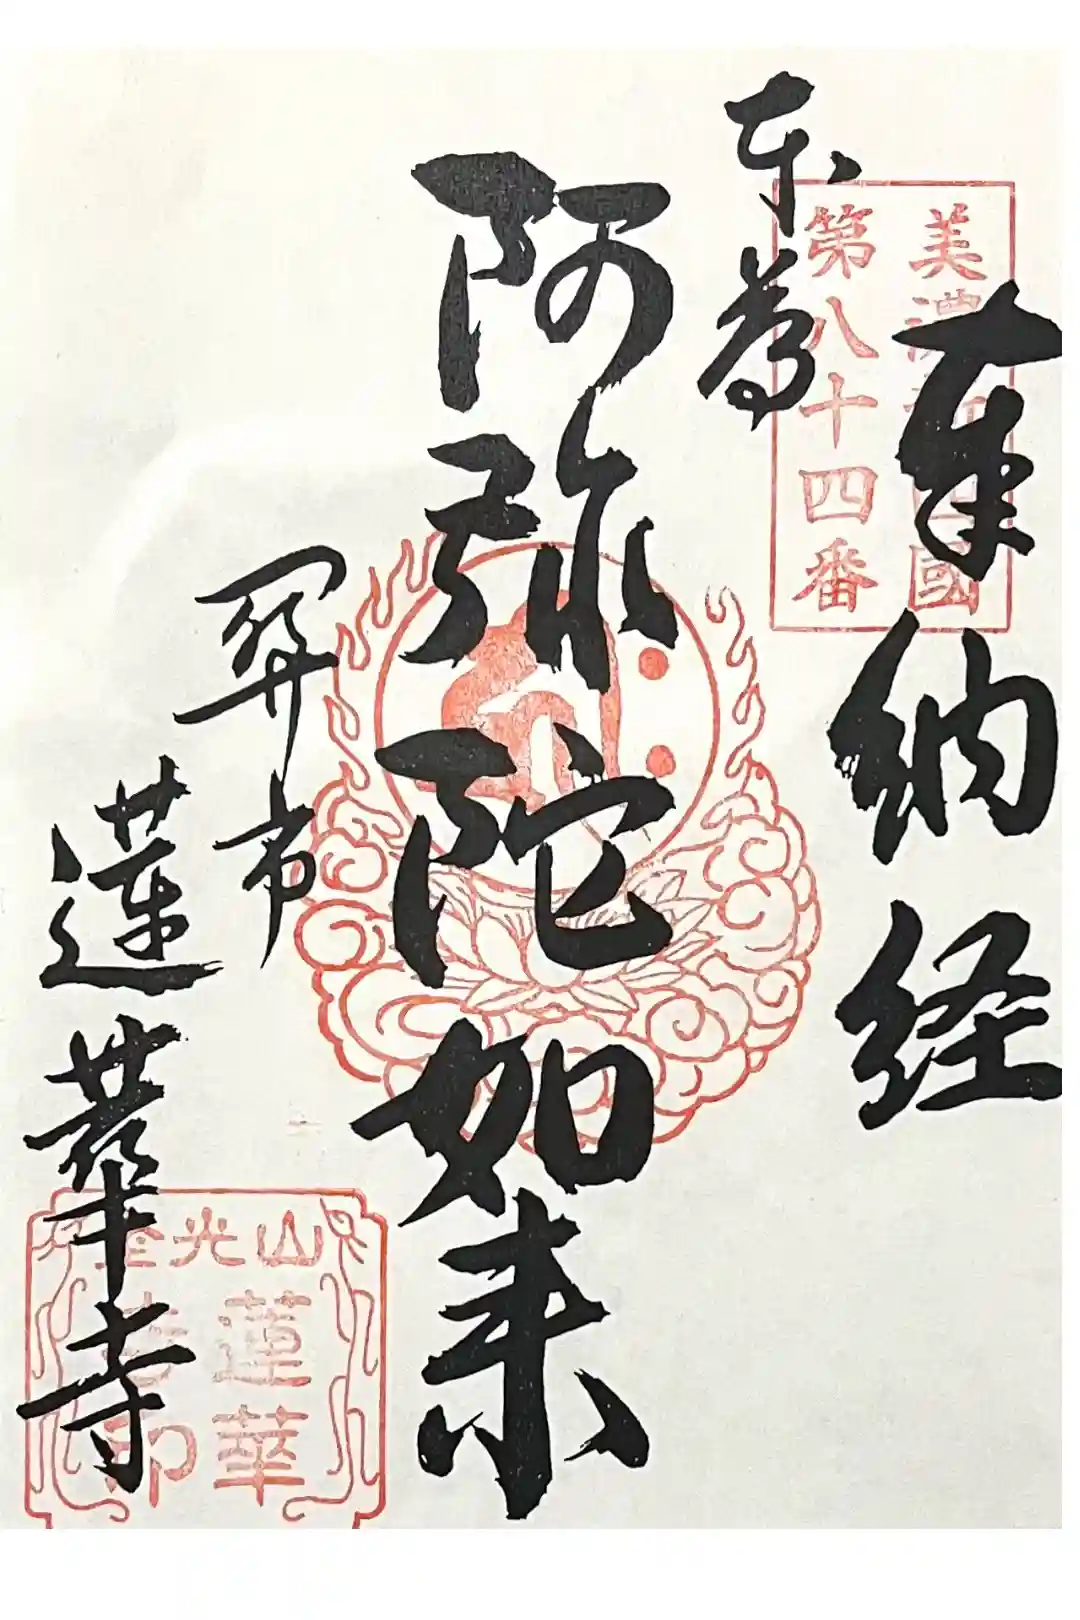 奉納経
美濃新四國
第八十四番
本尊
阿弥陀如来
関市
蓮華寺
山光金
蓮華
寺印